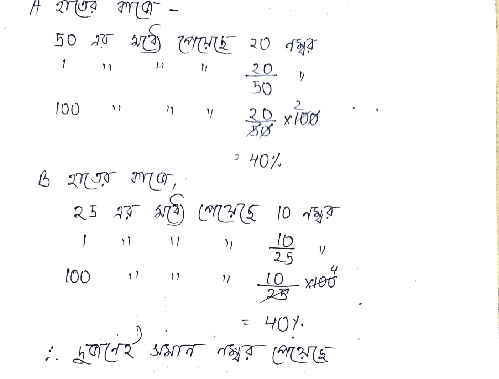 A হাতের কাজে –
50 এর মধ্যে পেয়েছে 20 নম্বর
1 " " " 20/50 "
100 " " " 20/50 × 100 2
= 40%
B হাতের কাজে,
25 এর মধ্যে পেয়েছে 10 নম্বর
1 " " " 10/25 "
100 " " " 10/25 × 100 4
= 40%
∴ দুজনেই সমান নম্বর পেয়েছে